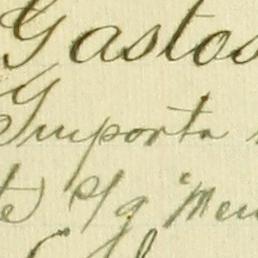 Gastos
Importa
te) c/g "Men